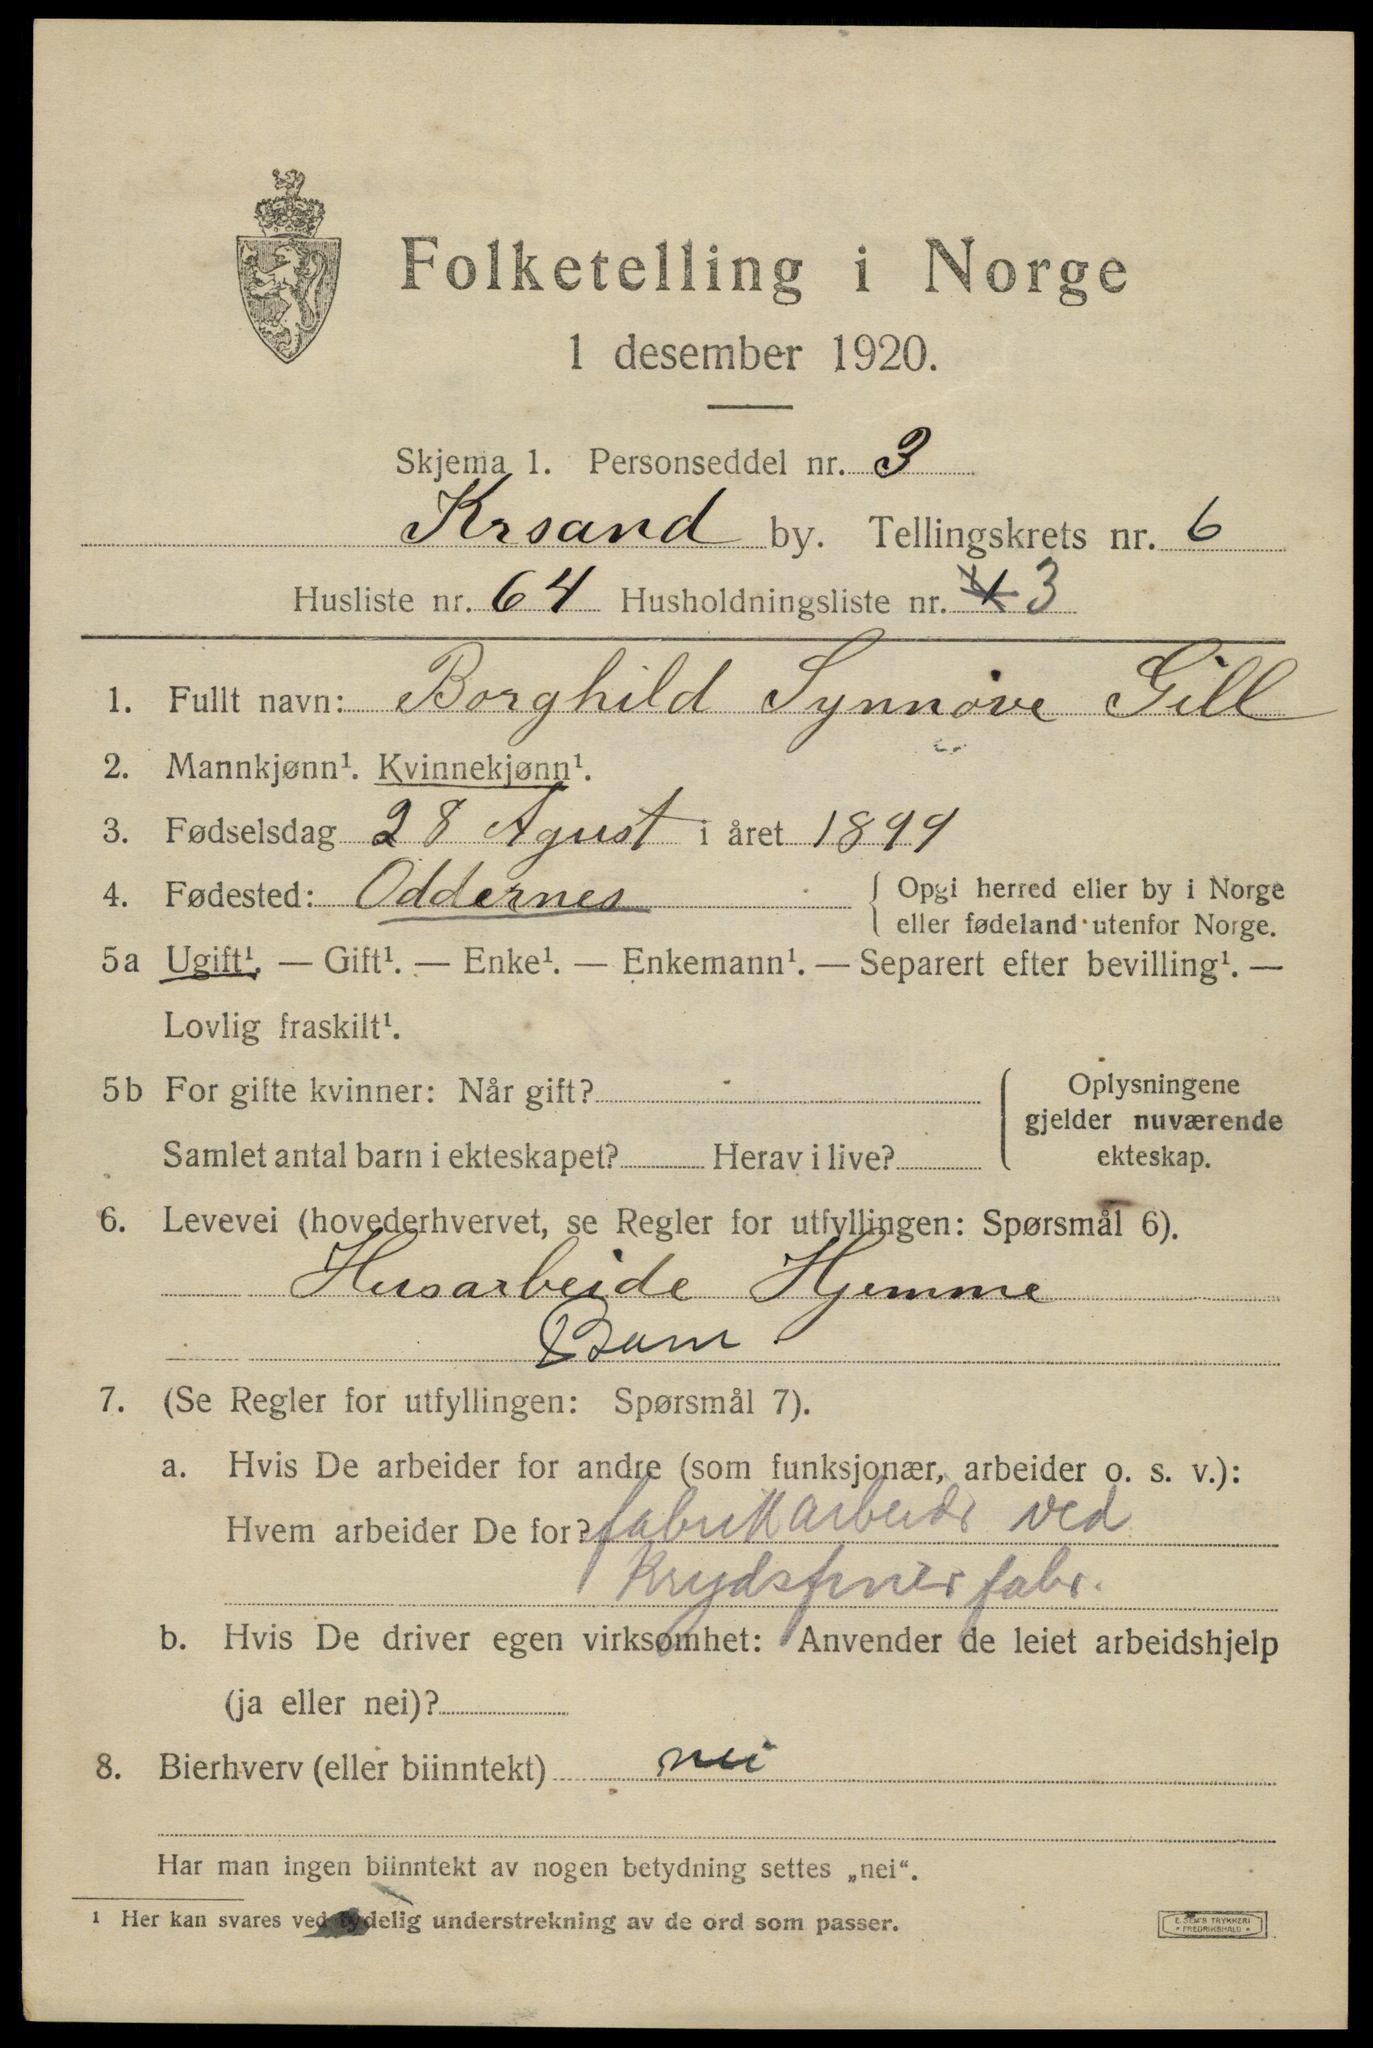 Folketelling i Norge
1 desember 1920.
Skjema 1. Personseddel nr. 3
Krsand by. Tellingskrets nr. 6
Husliste nr. 64 Husholdningsliste nr. 3
1. Fullt navn: Borghild Synnøve Gill
2. Mannkjønn¹. Kvinnekjønn¹.
3. Fødselsdag 28 Agust i året 1899
4. Fødested: Oddernes { Opgi herred eller by i Norge
eller fødeland utenfor Norge.
5a Ugift¹. — Gift¹. — Enke¹. — Enkemann¹. — Separert efter bevilling¹. —
Lovlig fraskilt¹.
5b For gifte kvinner: Når gift? Oplysningene
gjelder nuværende
Samlet antal barn i ekteskapet? Herav i live? ekteskap.
6. Levevei (hovederhvervet, se Regler for utfyllingen: Spørsmål 6).
Husarbeide Hjemme
Barn
7. (Se Regler for utfyllingen: Spørsmål 7).
a. Hvis De arbeider for andre (som funksjonær, arbeider o. s. v.):
Hvem arbeider De for? fabrikkarbeide ved
Krydsfinerfabr.
b. Hvis De driver egen virksomhet: Anvender de leiet arbeidshjelp
(ja eller nei)?
8. Bierhverv (eller biinntekt) nei
Har man ingen biinntekt av nogen betydning settes „nei“.
¹ Her kan svares ved tydelig understrekning av de ord som passer.
E. SEM'S TRYKKERI
* FREDRIKSHALD *